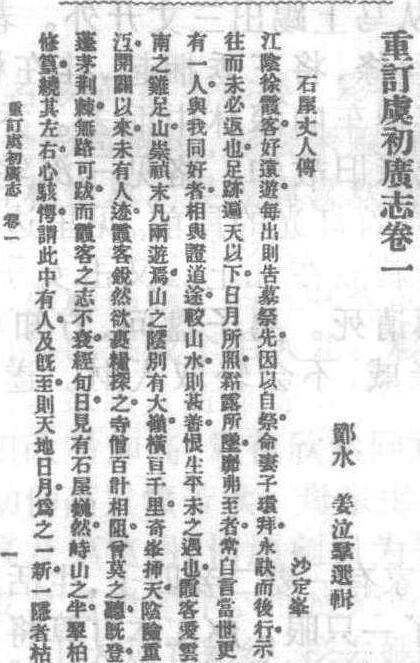 重訂虞初廣志卷一
鄞水　姜泣羣選輯
石屋丈人傳
沙定峯
江陰徐霞客好遠遊每出則告墓祭先因以自祭命妻子環拜永訣而後行示
往而未必返也足跡遍天以下日月所照霜露所墜靡弗至者常自言當世更
有一人與我同好者相與證道途較山水則甚善恨生平未之遇也霞客愛雲
南之雞足山崇禎末凡兩遊焉山之陰別有大嶺橫亘千里奇峯插天陰險重
沍開闢以來未有人迹霞客銳然欲裹糧探之寺僧百計相阻曾莫之聽既登
蓬茅荆棘無路可跋而霞客之志不衰經旬日見有石屋巋然峙山之半翠柏
修篁繞其左右心駭愕謂此中有人及旣至則天地日月爲之一新一隱者枯
重訂虞初廣志　卷一
一